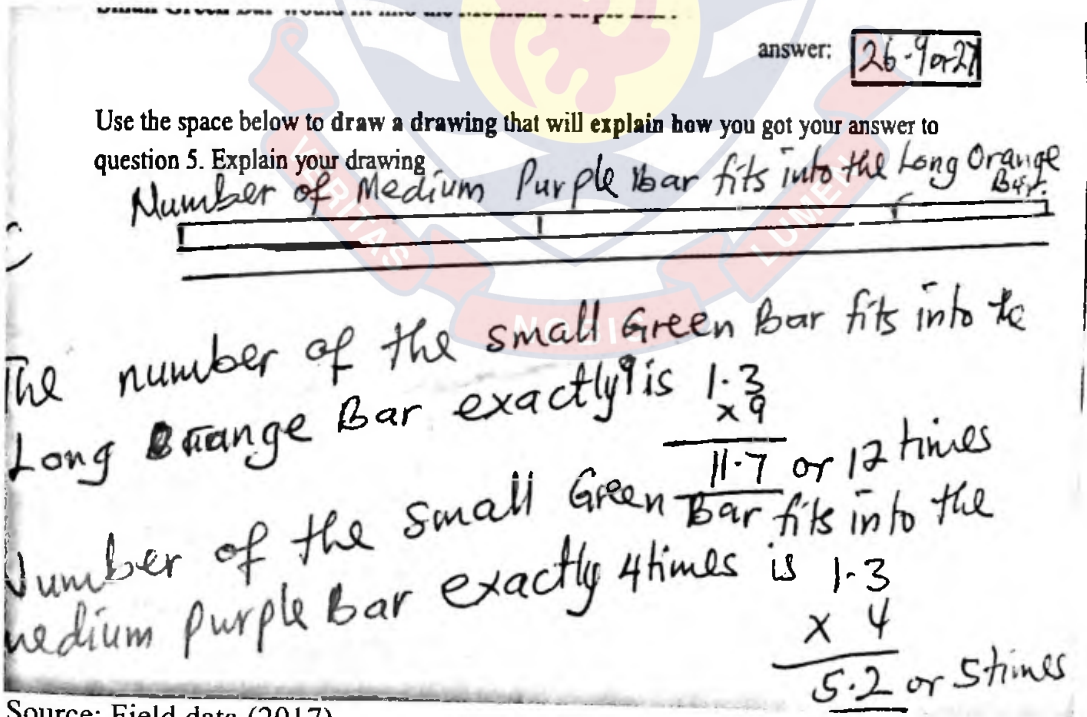 Small Green Bar would fit into the Medium Purple Bar.
answer: 26.9 or 27
Use the space below to draw a drawing that will explain how you got your answer to
question 5. Explain your drawing
Number of Medium Purple Bar fits into the Long Orange
Bar.
VERITAS
NOBIS
LUMEN
The number of the small Green Bar fits into the
Long Orange Bar exactly 9 is 1.3
x 9
11.7 or 12 times
Number of the small Green Bar fits into the
medium purple Bar exactly 4 times is 1.3
x 4
5.2 or 5 times
Source: Field data (2017)